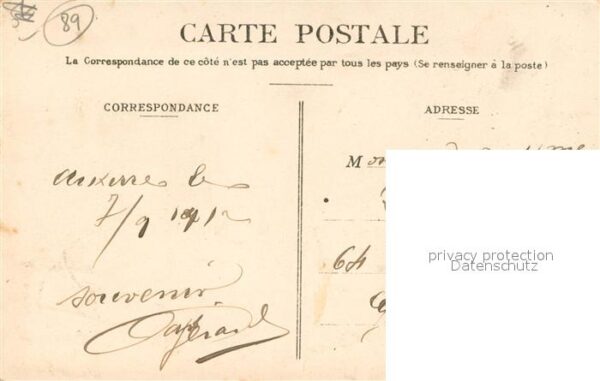 89
CARTE POSTALE
La Correspondance de ce côté n'est pas acceptée par tous les pays (Se renseigner à la poste)
CORRESPONDANCE
ADRESSE
auxerre le
7/9 1912
souvenir
M
64
privacy protection
Datenschutz